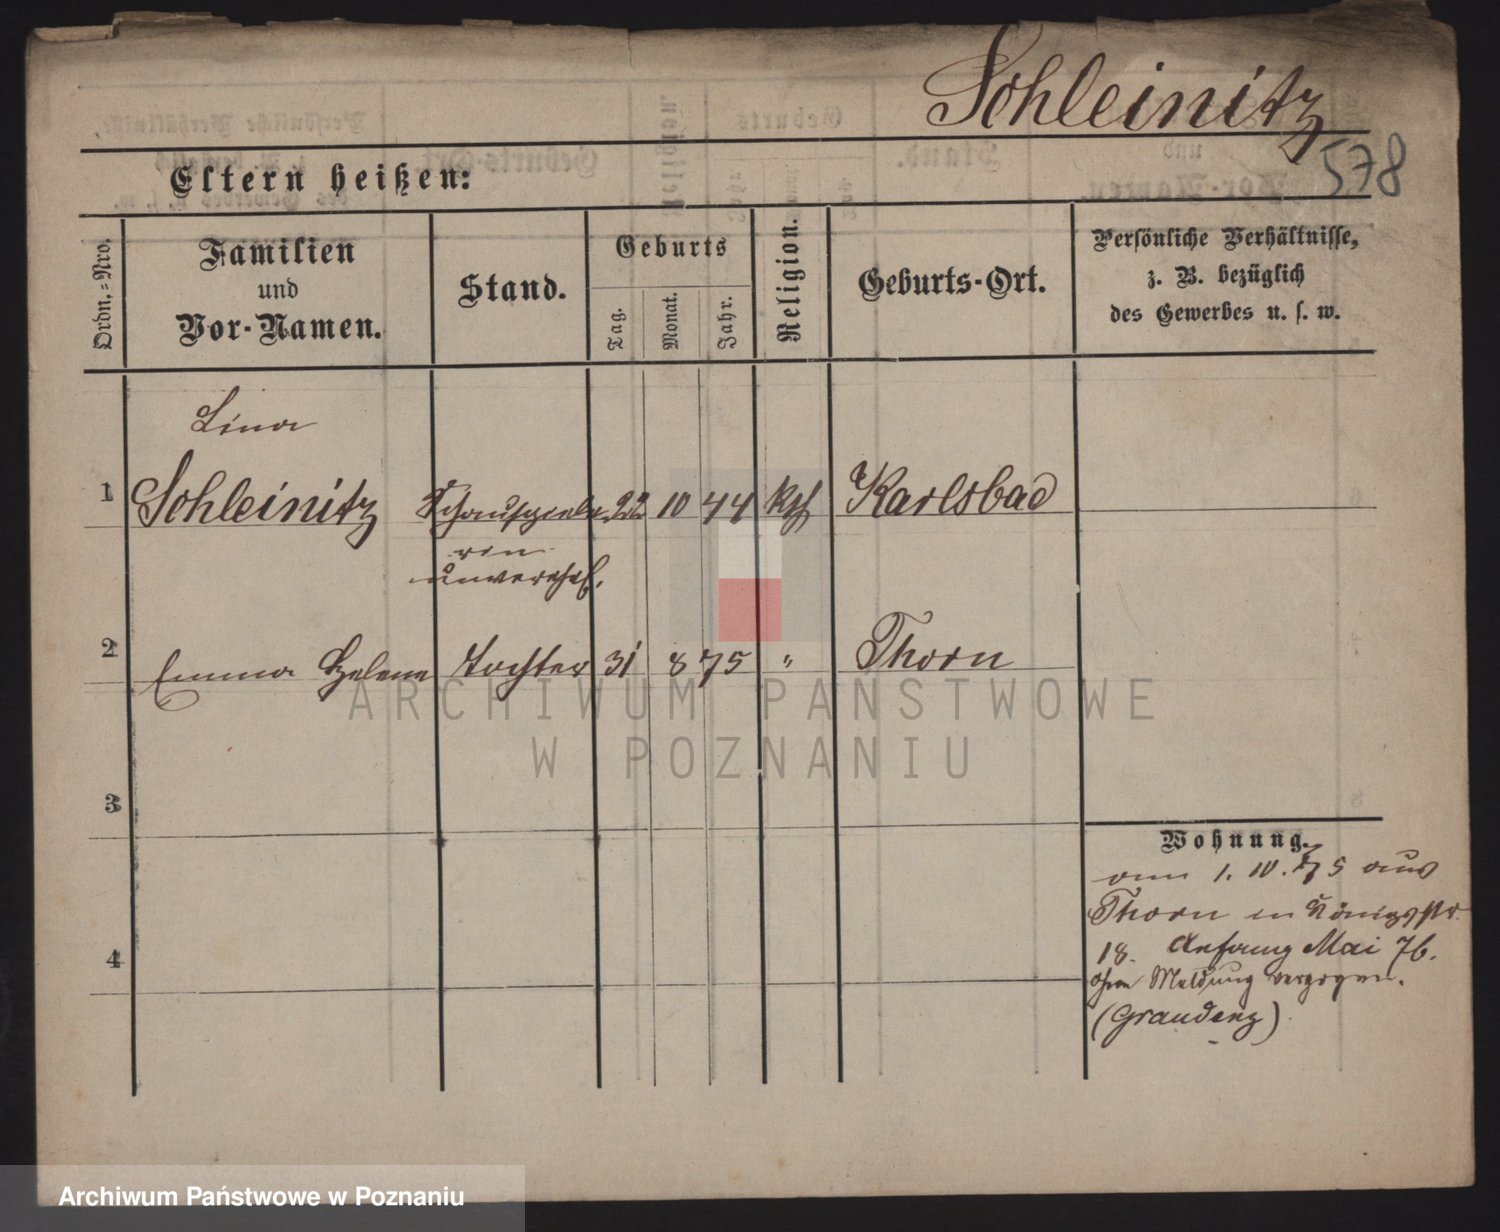 Schleinitz
578
Eltern heißen:
Ordn.=Nro.
Familien
und
Vor-Namen.
Stand.
Geburts
Tag.
Monat.
Jahr.
Religion.
Geburts-Ort.
Persönliche Verhältnisse,
z. B. bezüglich
des Gewerbes u. s. w.
Lina
1 Schleinitz Schauspiele 22 10 44 kth Karlsbad
rin
unverehel.
2 Emma Helene Tochter 31 8 75 " Thorn
3
Wohnung.
vom 1. 10. 75 aus
Thorn in Königsstr.
18. Anfang Mai 76.
4
ohne Meldung verzogen.
(Graudenz)
ARCHIWUM PAŃSTWOWE
W POZNANIU
Archiwum Państwowe w Poznaniu